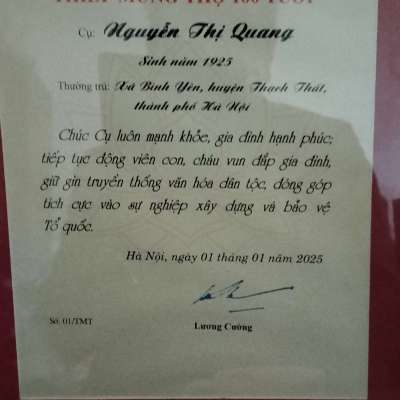 THIẾP MỪNG THỌ 100 TUỔI
Cụ: Nguyễn Thị Quang
Sinh năm 1925
Thường trú: Xã Bình Yên, huyện Thạch Thất,
thành phố Hà Nội
Chúc Cụ luôn mạnh khỏe, gia đình hạnh phúc;
tiếp tục động viên con, cháu vun đắp gia đình,
giữ gìn truyền thống văn hóa dân tộc, đóng góp
tích cực vào sự nghiệp xây dựng và bảo vệ
Tổ quốc.
Hà Nội, ngày 01 tháng 01 năm 2025
Số: 01/TMT
Lương Cường